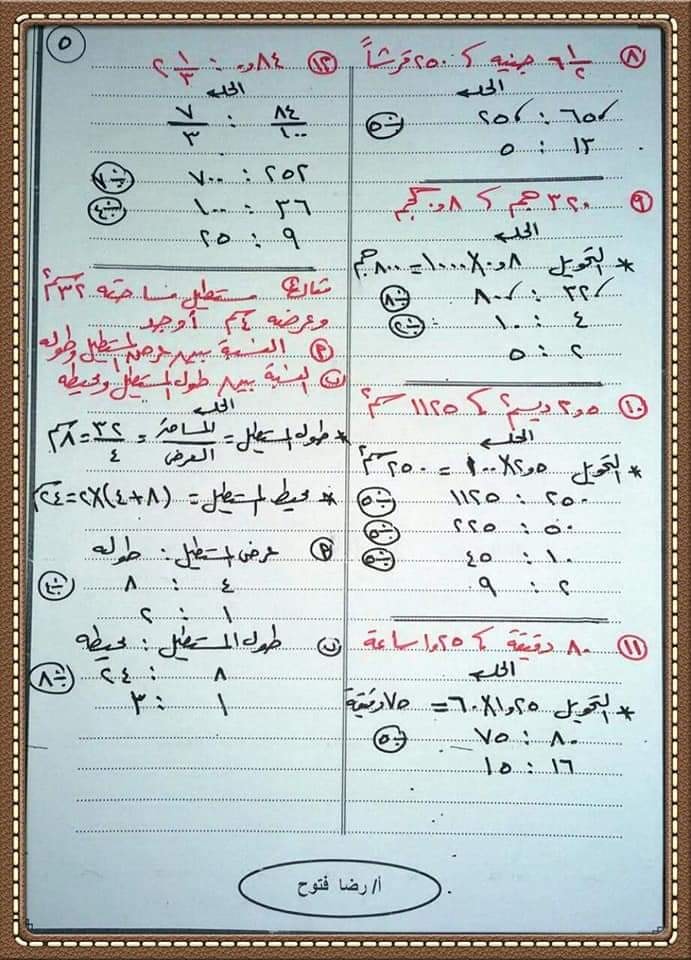 ٥
٨ ٦ ١/٢ جنيه ، ٢٥٠ قرشاً
الحل
٦٥٠ : ٢٥٠ ÷٥
١٣ : ٥
٩ ٣٢٠ جم ، ٠,٨ كجم
الحل
* التحويل ٠,٨ × ١٠٠٠ = ٨٠٠ جم
٣٢٠ : ٨٠٠ ÷٨
٤ : ١٠ ÷٢
٢ : ٥
١٠ ٢,٥ ديسم٢ ، ١١٢٥ سم٢
الحل
* التحويل ٢,٥ × ١٠٠ = ٢٥٠ سم٢
٢٥٠ : ١١٢٥ ÷٥
٥٠ : ٢٢٥ ÷٥
١٠ : ٤٥ ÷٥
٢ : ٩
١١ ٨٠ دقيقة ، ١,٢٥ ساعة
الحل
* التحويل ١,٢٥ × ٦٠ = ٧٥ دقيقة
٨٠ : ٧٥ ÷٥
١٦ : ١٥
١٢ ٠,٨٤ : ٢ ١/٣
الحل
٨٤/١٠٠ : ٧/٣
٢٥٢ : ٧٠٠ ÷٧
٣٦ : ١٠٠ ÷٤
٩ : ٢٥
مستطيل مساحته ٣٢ سم٢
وعرضه ٤ سم أوجد
أ النسبة بين عرض المستطيل وطوله
ب النسبة بين طول المستطيل ومحيطه
الحل
* طول المستطيل = المساحة/العرض = ٣٢/٤ = ٨ سم
* محيط المستطيل = (٨+٤)×٢ = ٢٤ سم
أ عرض المستطيل : طوله
٤ : ٨ ÷٤
١ : ٢
ب طول المستطيل : محيطه
٨ : ٢٤ ÷٨
١ : ٣
أ/ رضا فتوح